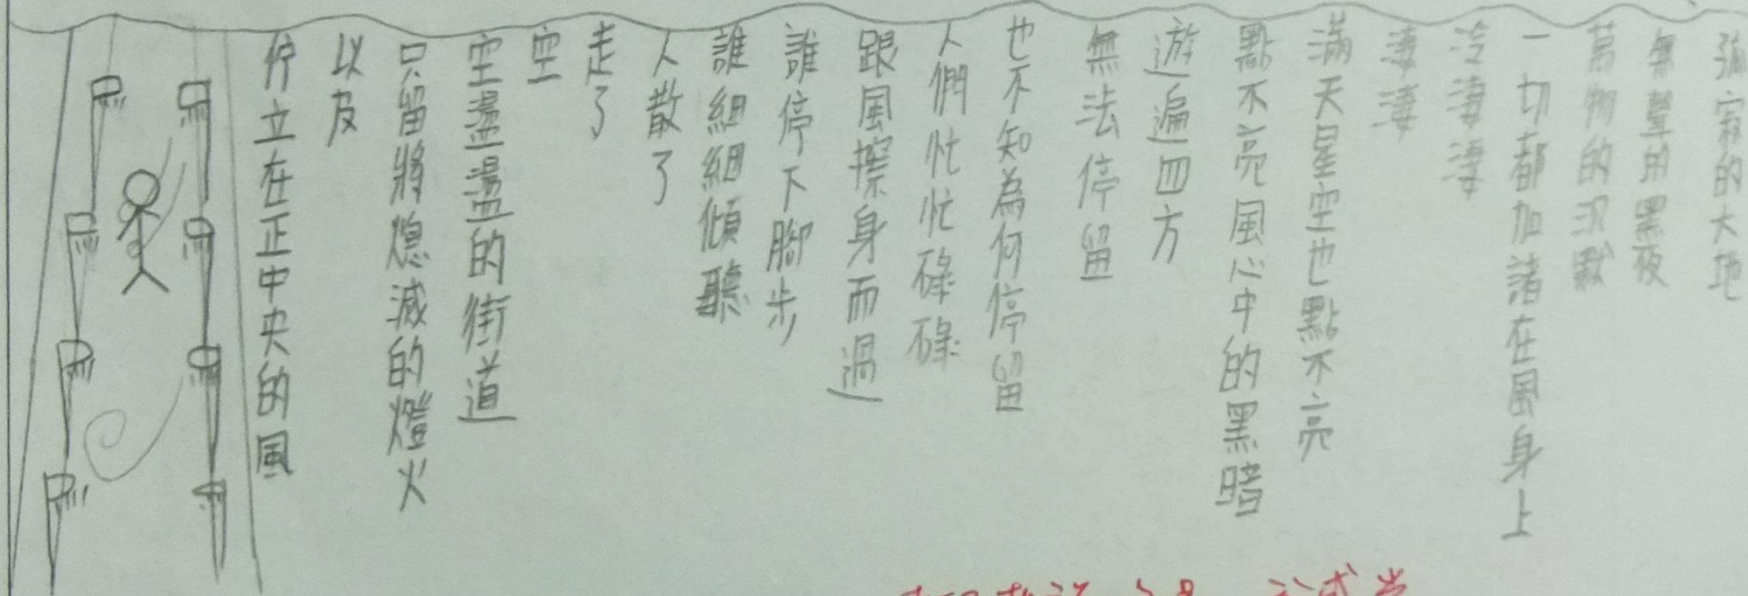 孤寂的大地
無聲的黑夜
萬物的沉默
一切都加諸在風身上
冷淒淒
淒淒
滿天星空也點不亮
點不亮風心中的黑暗
遊遍四方
無法停留
也不知為何停留
人們忙忙碌碌
跟風擦身而過
誰停下腳步
誰細細傾聽
人散了
走了
空
空盪盪的街道
只留將熄滅的燈火
以及
佇立在正中央的風